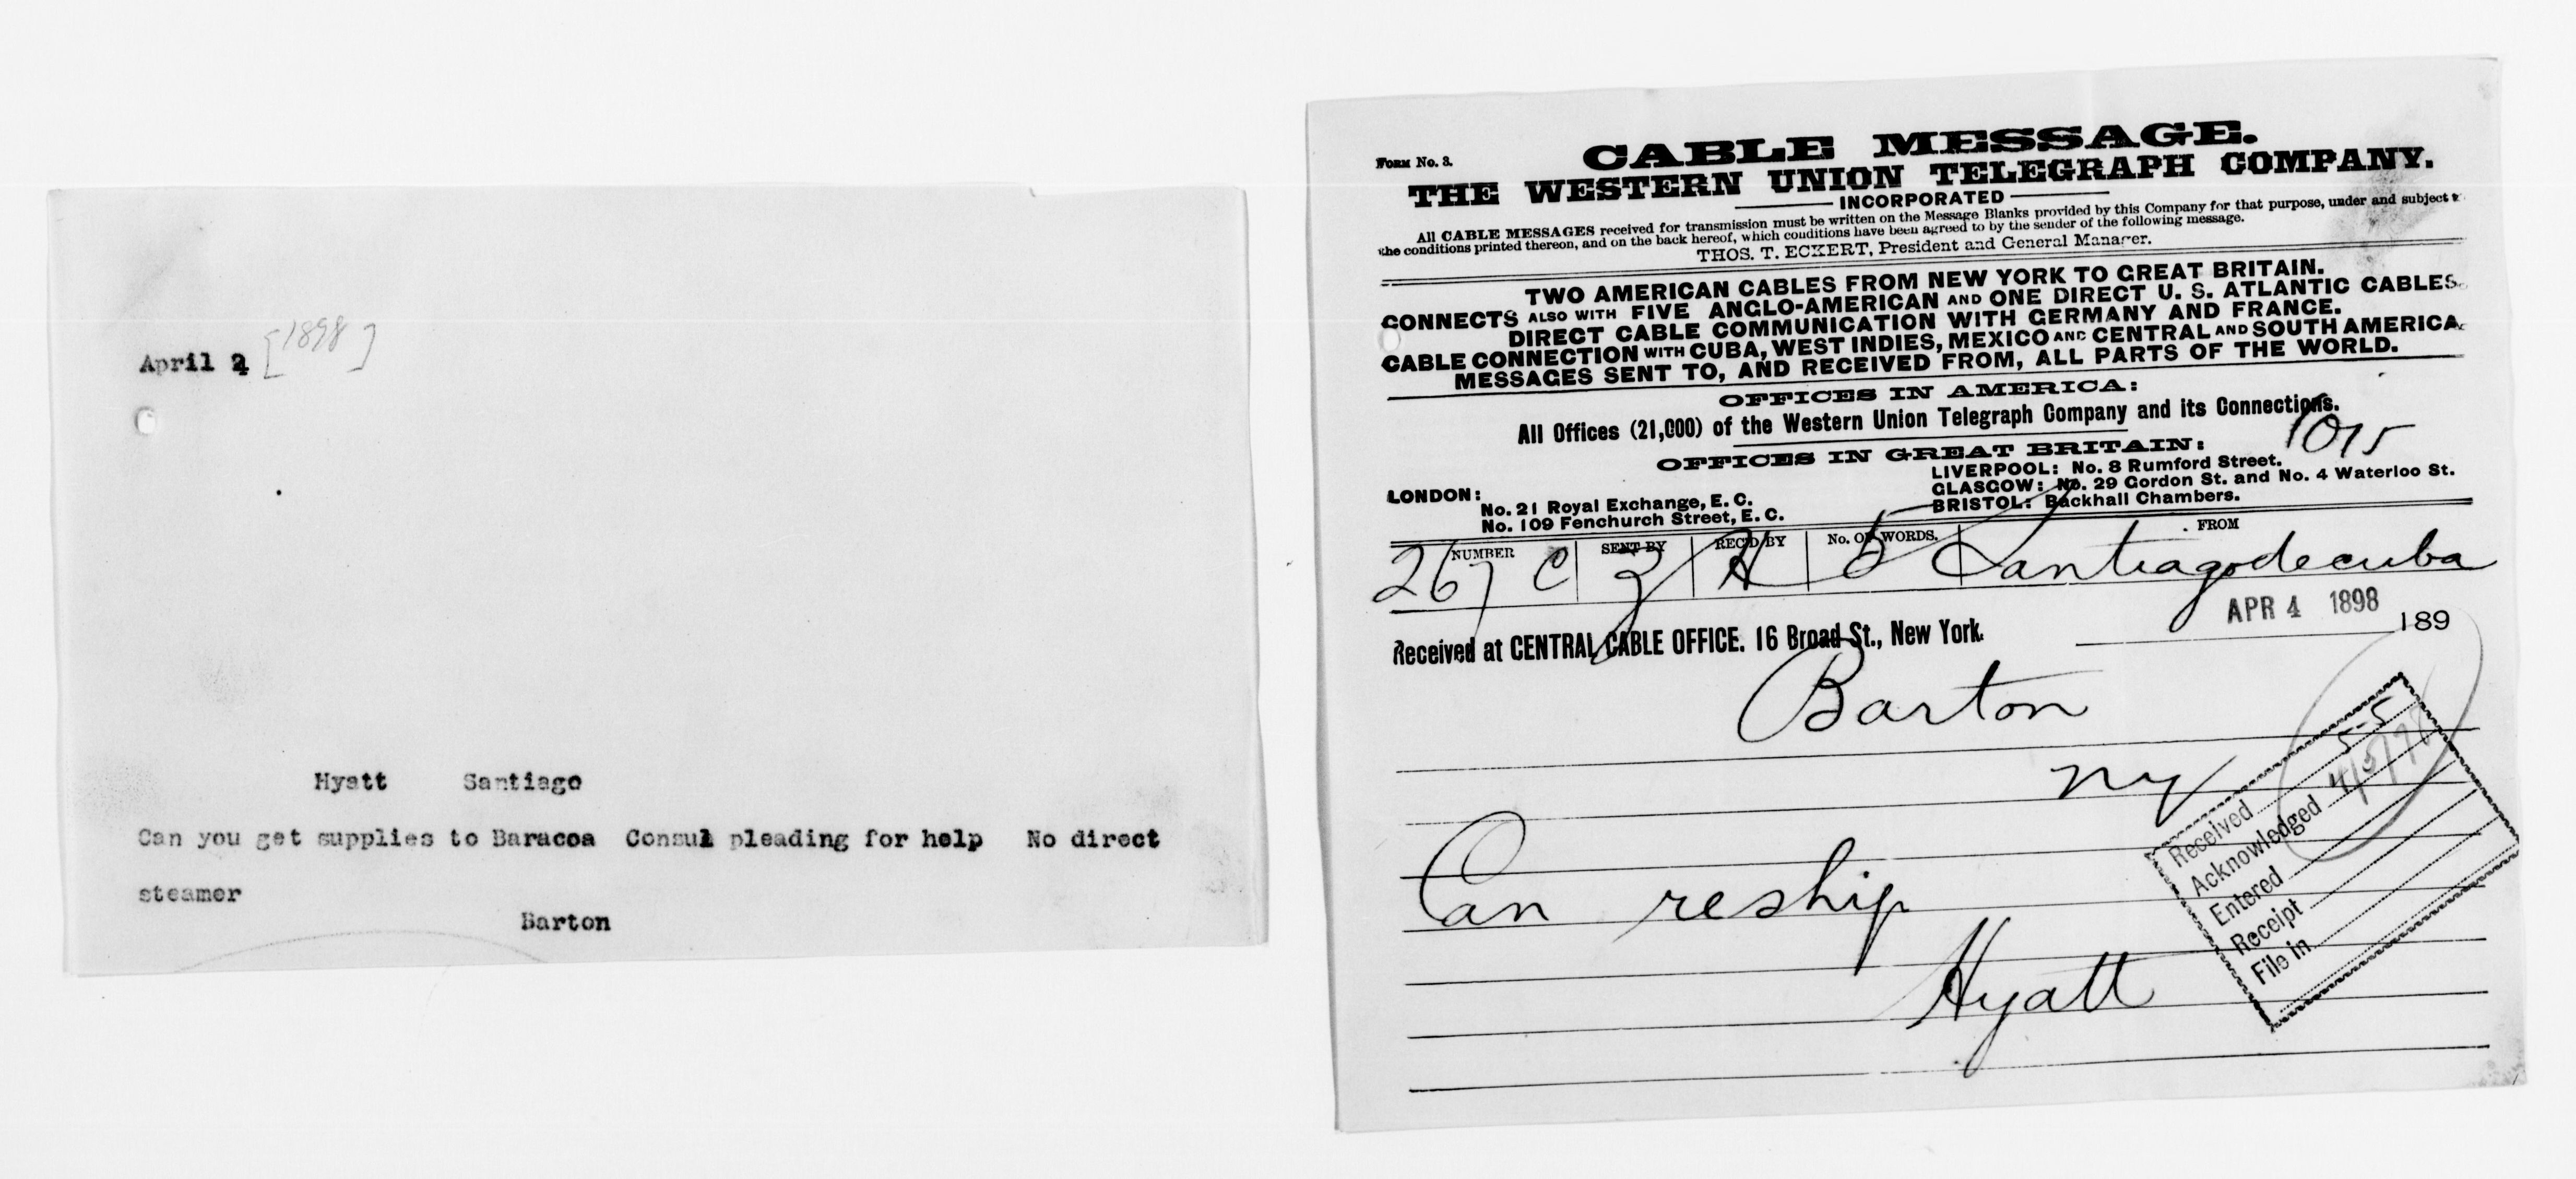 April 2 [1898]
Hyatt Santiago
Can you get supplies to Baracoa Consul pleading for help No direct
steamer
Barton
FORM No. 3.
CABLE MESSAGE.
THE WESTERN UNION TELEGRAPH COMPANY.
INCORPORATED
All CABLE MESSAGES received for transmission must be written on the Message Blanks provided by this Company for that purpose, under and subject to
the conditions printed thereon, and on the back hereof, which conditions have been agreed to by the sender of the following message.
THOS. T. ECKERT, President and General Manager.
TWO AMERICAN CABLES FROM NEW YORK TO GREAT BRITAIN.
CONNECTS ALSO WITH FIVE ANGLO-AMERICAN AND ONE DIRECT U. S. ATLANTIC CABLES.
DIRECT CABLE COMMUNICATION WITH GERMANY AND FRANCE.
CABLE CONNECTION WITH CUBA, WEST INDIES, MEXICO AND CENTRAL AND SOUTH AMERICA.
MESSAGES SENT TO, AND RECEIVED FROM, ALL PARTS OF THE WORLD.
OFFICES IN AMERICA:
All Offices (21,000) of the Western Union Telegraph Company and its Connections.
1015
OFFICES IN GREAT BRITAIN:
LONDON:
No. 21 Royal Exchange, E. C.
No. 109 Fenchurch Street, E. C.
LIVERPOOL: No. 8 Rumford Street.
GLASGOW: No. 29 Gordon St. and No. 4 Waterloo St.
BRISTOL: Backhall Chambers.
NUMBER SENT BY REC'D BY No. OF WORDS. FROM
267 C 5 Santiagodecuba
APR 4 1898
Received at CENTRAL CABLE OFFICE. 16 Broad St., New York. 189
Barton
ny
Can reship
Hyatt
Received 5-5
Acknowledged 4/5/98
Entered
Receipt
File in